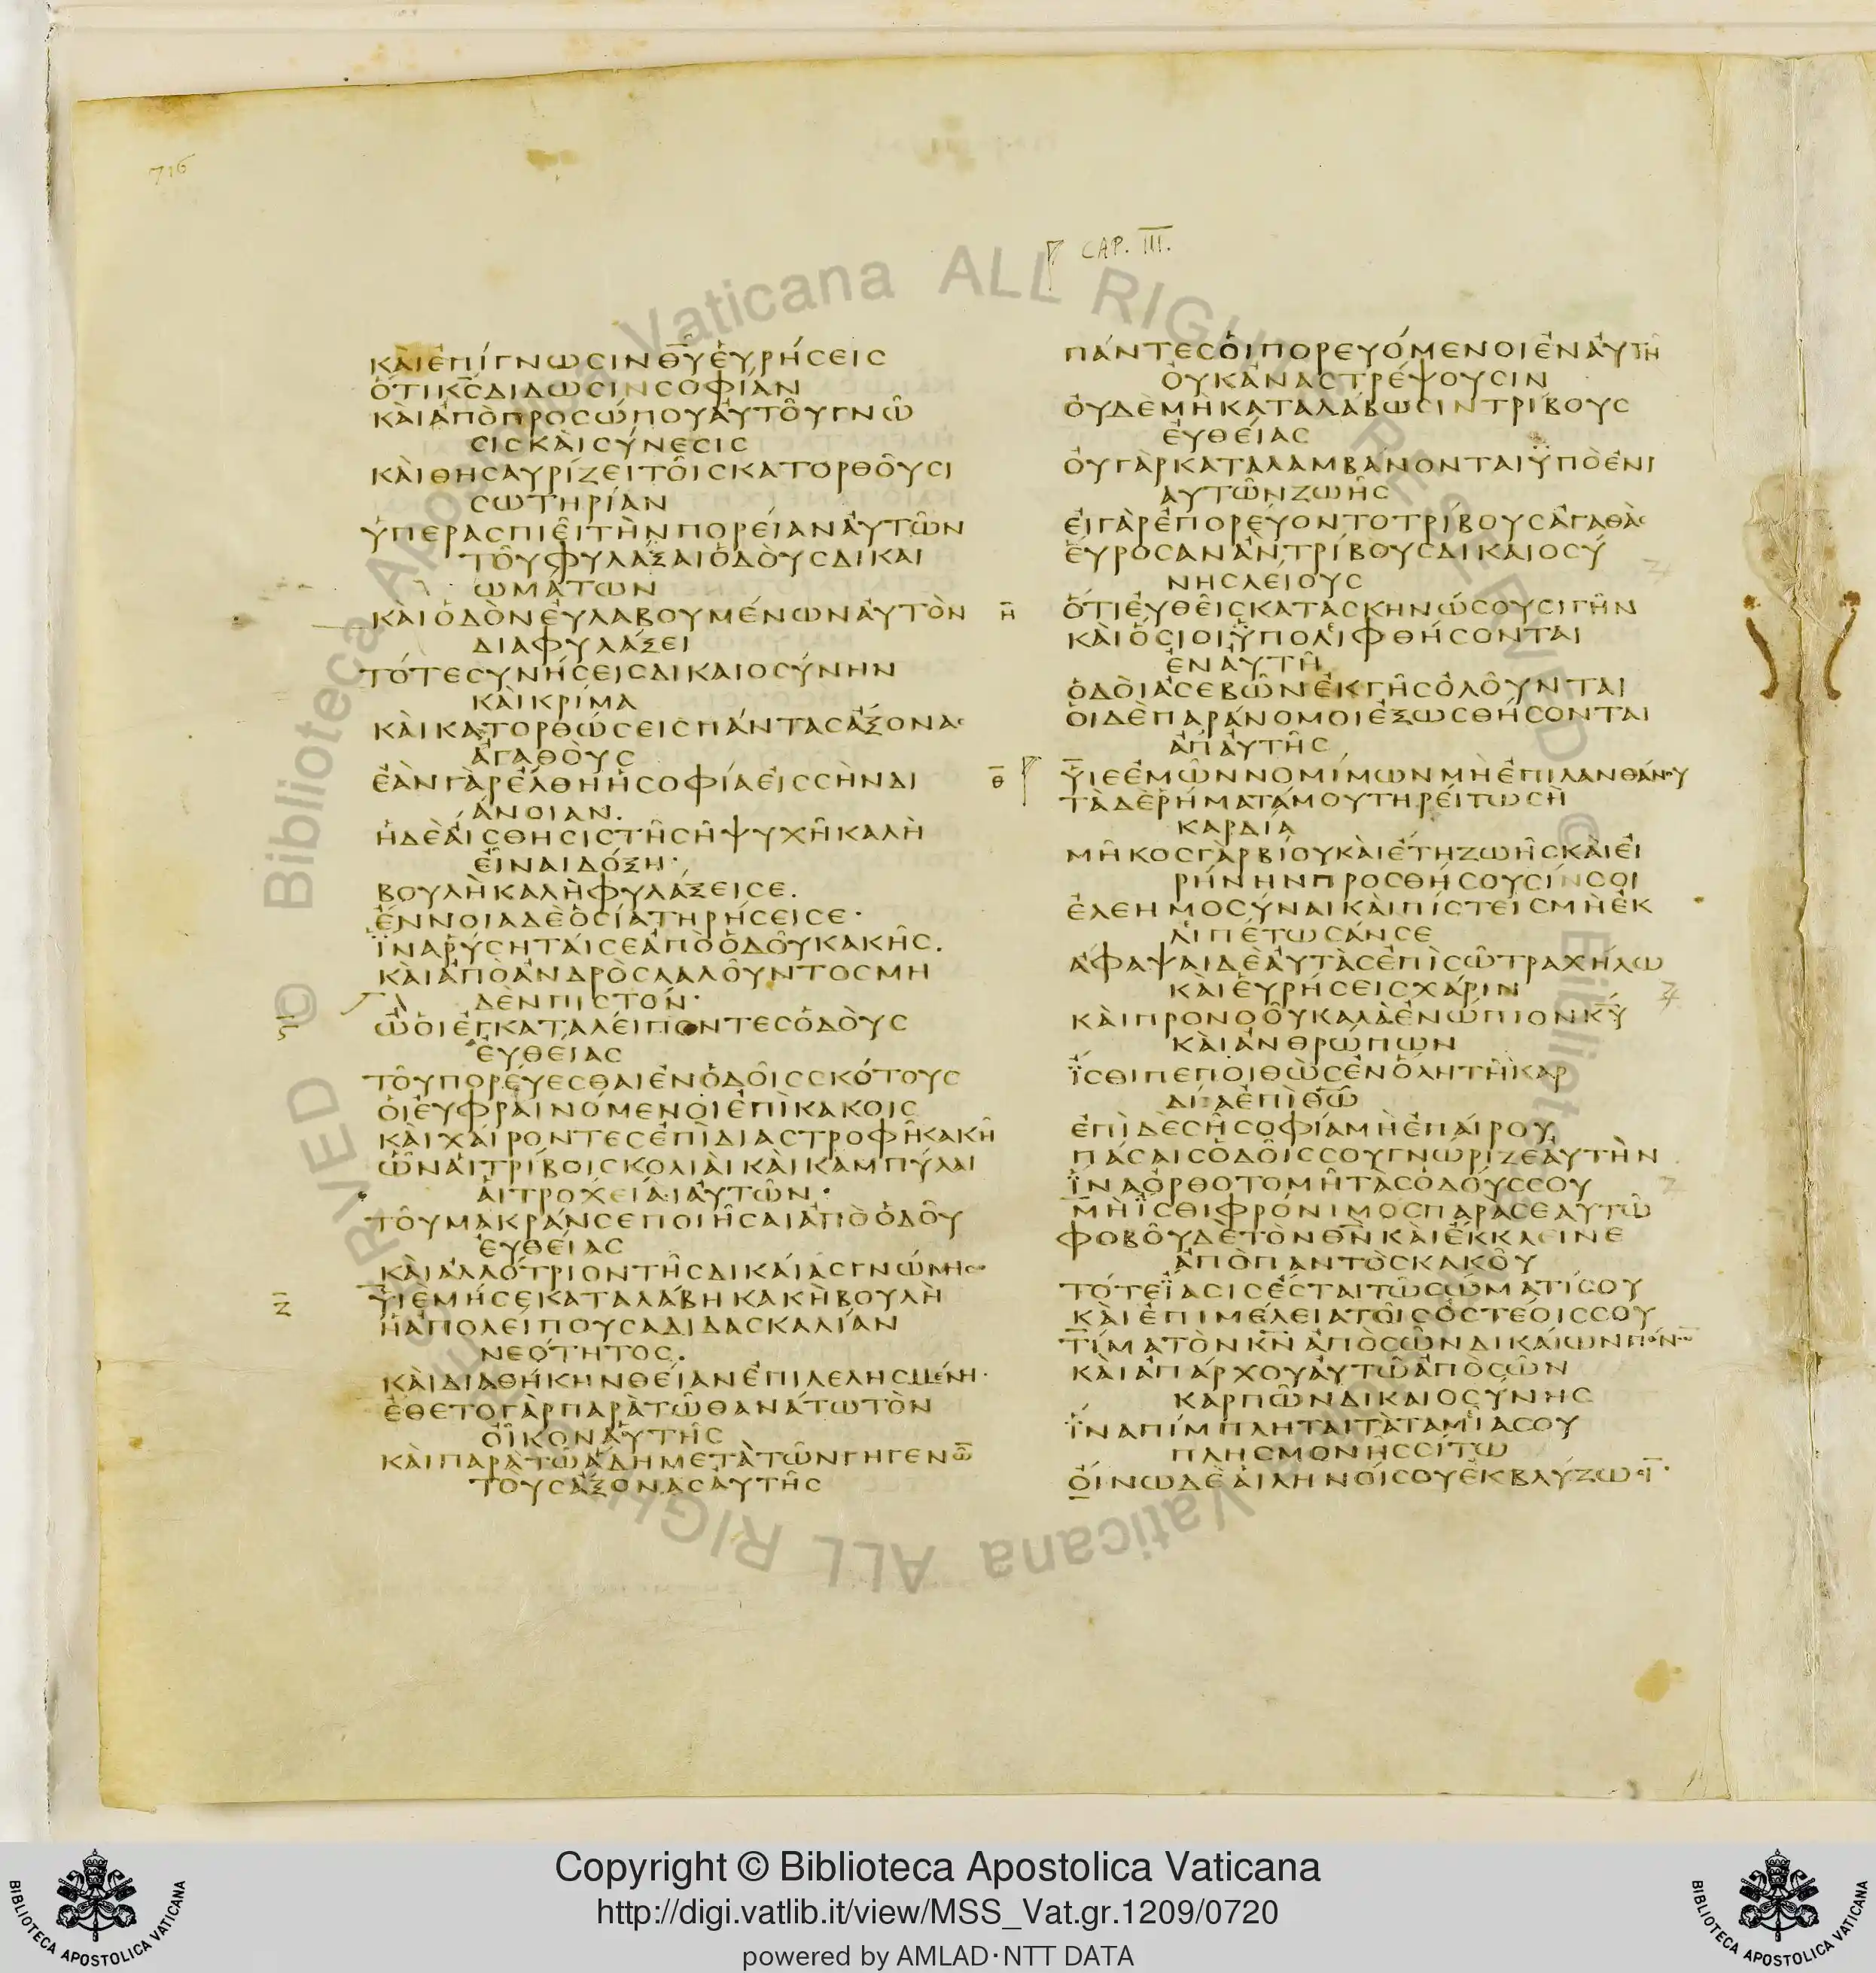 716
CAP. III.
ΚΑὶἘΠΊΓΝΩϹΙΝΘΥ͂ἙΥΡΉϹΕΙϹ
ὍΤΙΚϹΔΙΔΩϹΙΝϹΟΦΊΑΝ
ΚΑὶἈΠῸΠΡΟϹΏΠΟΥἈΥΤΟΥ͂ΓΝΩ͂
ϹΙϹΚΑὶϹΎΝΕϹΙϹ
ΚΑὶΘΗϹΑΥΡΊΖΕΙΤΟΙ͂ϹΚΑΤΟΡΘΟΥ͂ϹΙ
ϹΩΤΗΡΊΑΝ
ὙΠΕΡΑϹΠΙΕΙ͂ΤῊΝΠΟΡΕΊΑΝἈΥΤΩ͂Ν
ΤΟΥ͂ΦΥΛΆΞΑΙὉΔΟῪϹΔΙΚΑΙ
ΩΜΆΤΩΝ
ΚΑὶὉΔῸΝἘΥΛΑΒΟΥΜΈΝΩΝἈΥΤῸΝ
ΔΙΑΦΥΛΆΞΕΙ
ΤΌΤΕϹΥΝΉϹΕΙϹΔΙΚΑΙΟϹΎΝΗΝ
ΚΑὶΚΡΊΜΑ
ΚΑὶΚΑΤΟΡΘΏϹΕΙϹΠΆΝΤΑϹἌΞΟΝΑϹ
ἈΓΑΘΟῪϹ
ἘᾺΝΓᾺΡἜΛΘΗἩϹΟΦΊΑἘΙϹϹῊΝΔΙ
ΆΝΟΙΑΝ.
ἩΔῈἌΙϹΘΗϹΙϹΤΗ͂ϹΗ͂ΨΥΧΗ͂ΚΑΛῊ
ἘΙ͂ΝΑΙΔΌΞΗ·
ΒΟΥΛῊΚΑΛῊΦΥΛΆΞΕΙϹΕ.
ἜΝΝΟΙΑΔῈὉϹΊΑΤΗΡΉϹΕΙϹΕ·
ἽΝΑῬΎϹΗΤΑΊϹΕἈΠῸὉΔΟΥ͂ΚΑΚΗ͂Ϲ.
ΚΑὶἈΠῸἈΝΔΡῸϹΛΑΛΟΥ͂ΝΤΟϹΜΗ
ΔῈΝΠΙϹΤΌΝ·
Ϛ
ὮὉΙἘΓΚΑΤΑΛΕΊΠΟΝΤΕϹὉΔΟῪϹ
ἘΥΘΕΊΑϹ
ΤΟΥ͂ΠΟΡΕΎΕϹΘΑΙἘΝὉΔΟΙ͂ϹϹΚΌΤΟΥϹ
ὉΙἘΥΦΡΑΙΝΌΜΕΝΟΙἘΠῚΚΑΚΟΙϹ
ΚΑὶΧΑΊΡΟΝΤΕϹἘΠῚΔΙΑϹΤΡΟΦΗ͂ΚΑΚΗ͂
ὯΝΑἹΤΡΊΒΟΙϹΚΟΛΙΑῚΚΑὶΚΑΜΠΎΛΑΙ
ἉΙΤΡΟΧΕΙΑῚἈΥΤΩ͂Ν·
ΤΟΥ͂ΜΑΚΡΆΝϹΕΠΟΙΗ͂ϹΑΙἈΠῸὉΔΟΥ͂
ἘΥΘΕΊΑϹ
ΚΑὶἈΛΛΌΤΡΙΟΝΤΗ͂ϹΔΙΚΑΊΑϹΓΝΏΜΗϹ
Ζ
ΥἹΕΜΉϹΕΚΑΤΑΛΆΒΗΚΑΚῊΒΟΥΛῊ
ἩἈΠΟΛΕΊΠΟΥϹΑΔΙΔΑϹΚΑΛΊΑΝ
ΝΕΌΤΗΤΟϹ.
ΚΑὶΔΙΑΘΉΚΗΝΘΕΊΑΝἘΠΙΛΕΛΗϹΜΈΝΗ·
ἜΘΕΤΟΓᾺΡΠΑΡᾺΤΩ͂ΘΑΝΆΤΩΤῸΝ
ὈΙ͂ΚΟΝἈΥΤΗ͂Ϲ
ΚΑὶΠΑΡΑΤΩ͂ἍΔΗΜΕΤᾺΤΩ͂ΝΓΗΓΕΝΩ͂
ΤΟΥϹἌΞΟΝΑϹἈΥΤΗ͂Ϲ
ΠΆΝΤΕϹὉΙΠΟΡΕΥΌΜΕΝΟΙἘΝἈΥΤΗ͂
ὈΥΚἈΝΑϹΤΡΈΨΟΥϹΙΝ
ὈΥΔῈΜῊΚΑΤΑΛΆΒΩϹΙΝΤΡΊΒΟΥϹ
ἘΥΘΕΊΑϹ
ὈΥΓᾺΡΚΑΤΑΛΑΜΒΆΝΟΝΤΑΙὙΠῸἘΝΙ
ΑΥΤΩ͂ΝΖΩΗ͂Ϲ
ἘΙΓᾺΡἘΠΟΡΕΎΟΝΤΟΤΡΊΒΟΥϹἈΓΑΘᾺϹ
ἝΥΡΟϹΑΝἊΝΤΡΊΒΟΥϹΔΙΚΑΙΟϹΎ
ΝΗϹΛΕΊΟΥϹ
Η
ὍΤΙἘΥΘΕΙ͂ϹΚΑΤΑϹΚΗΝΏϹΟΥϹΙΓΗ͂Ν
ΚΑὶὍϹΙΟΙὙΠΟΛΙΦΘΉϹΟΝΤΑΙ
ἘΝἈΥΤΗ͂
ὉΔΟῚἈϹΕΒΩ͂ΝἘΚΓΗ͂ϹὈΛΟΥ͂ΝΤΑΙ
ὉΙΔῈΠΑΡΆΝΟΜΟΙἘΞΩϹΘΉϹΟΝΤΑΙ
ἈΠἈΥΤΗ͂Ϲ
Θ
ΥἹΕἘΜΩ͂ΝΝΟΜΊΜΩΝΜῊἘΠΙΛΑΝΘΆΝΟΥ
ΤᾺΔῈῬΉΜΑΤΆΜΟΥΤΗΡΕΊΤΩϹῊ
ΚΑΡΔΊΑ
ΜΗ͂ΚΟϹΓᾺΡΒΊΟΥΚΑὶἜΤΗΖΩΗ͂ϹΚΑὶἘΙ
ΡΉΝΗΝΠΡΟϹΘΉϹΟΥϹΊΝϹΟΙ
ἘΛΕΗΜΟϹΎΝΑΙΚΑὶΠΊϹΤΕΙϹΜῊἘΚ
ΛΙΠΈΤΩϹΆΝϹΕ
ἌΦΑΨΑΙΔῈἈΥΤᾺϹἘΠῚϹΩ͂ΤΡΑΧΉΛΩ
ΚΑὶἙΥΡΉϹΕΙϹΧΆΡΙΝ
ΚΑὶΠΡΟΝΟΟΥ͂ΚΑΛᾺἘΝΏΠΙΟΝΚΥ
ΚΑὶἈΝΘΡΏΠΩΝ
ἼϹΘΙΠΕΠΟΙΘῺϹἘΝὍΛΗΤΗ͂ΚΑΡ
ΔΊΑἘΠῚΘΩ͂
ἘΠῚΔῈϹΗ͂ϹΟΦΊΑΜῊἘΠΑΊΡΟΥ
ΠΆϹΑΙϹὉΔΟΙ͂ϹϹΟΥΓΝΏΡΙΖΕἈΥΤῊΝ
ἽΝΑὈΡΘΟΤΟΜΗ͂ΤᾺϹὉΔΟΎϹϹΟΥ
ΜῊἼϹΘΙΦΡΌΝΙΜΟϹΠΑΡΑϹΕΑΥΤΩ͂
ΦΟΒΟΥ͂ΔῈΤῸΝΘΝΚΑὶἜΚΚΛΕΙΝΕ
ἈΠῸΠΑΝΤῸϹΚΑΚΟΥ͂
ΤΌΤΕἼΑϹΙϹἜϹΤΑΙΤΩ͂ϹΏΜΑΤΊϹΟΥ
ΚΑὶἘΠΙΜΈΛΕΙΑΤΟΙ͂ϹὈϹΤΈΟΙϹϹΟΥ
ΤΊΜΑΤῸΝΚΝἈΠῸϹΩ͂ΝΔΙΚΑΊΩΝΠΌΝΩ
ΚΑὶἈΠΆΡΧΟΥἈΥΤΩ͂ἈΠῸϹΩ͂Ν
ΚΑΡΠΩ͂ΝΔΙΚΑΙΟϹΎΝΗϹ
ἽΝΑΠΊΜΠΛΗΤΑΙΤᾺΤΑΜΙΑϹΟΥ
ΠΛΗϹΜΟΝΗ͂ϹϹΊΤΩ
ὈΊΝΩΔῈἉΙΛΗΝΟΊϹΟΥἘΚΒΛΎΖΩϹΙ
Copyright © Biblioteca Apostolica Vaticana
http://digi.vatlib.it/view/MSS_Vat.gr.1209/0720
powered by AMLAD·NTT DATA
BIBLIOTECA APOSTOLICA VATICANA
BIBLIOTECA APOSTOLICA VATICANA